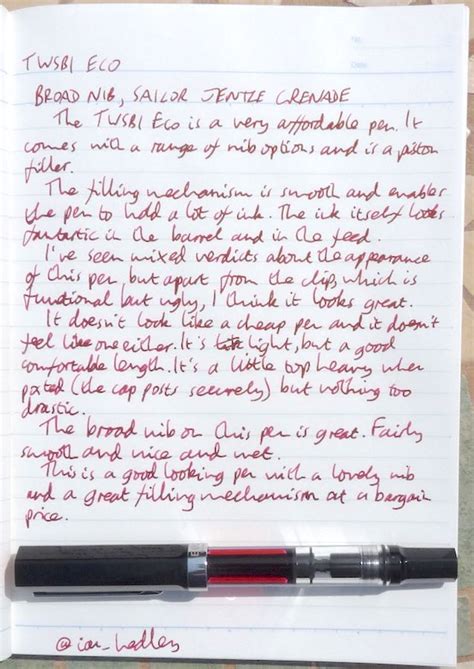 TWSBI ECO
BROAD NIB, SAILOR JENTLE GRENADE
The TWSBI Eco is a very affordable pen. It
comes with a range of nib options and is a piston
filler.
The filling mechanism is smooth and enables
the pen to hold a lot of ink. The ink itself looks
fantastic in the barrel and in the feed.
I've seen mixed verdicts about the appearance
of this pen, but apart from the clip, which is
functional but ugly, I think it looks great.
It doesn't look like a cheap pen and it doesn't
feel like one either. It's light, but a good
comfortable length. It's a little top heavy when
posted (the cap posts securely) but nothing too
drastic.
The broad nib on this pen is great. Fairly
smooth and nice and wet.
This is a good looking pen with a lovely nib
and a great filling mechanism at a bargain
price.
@ian_hedley